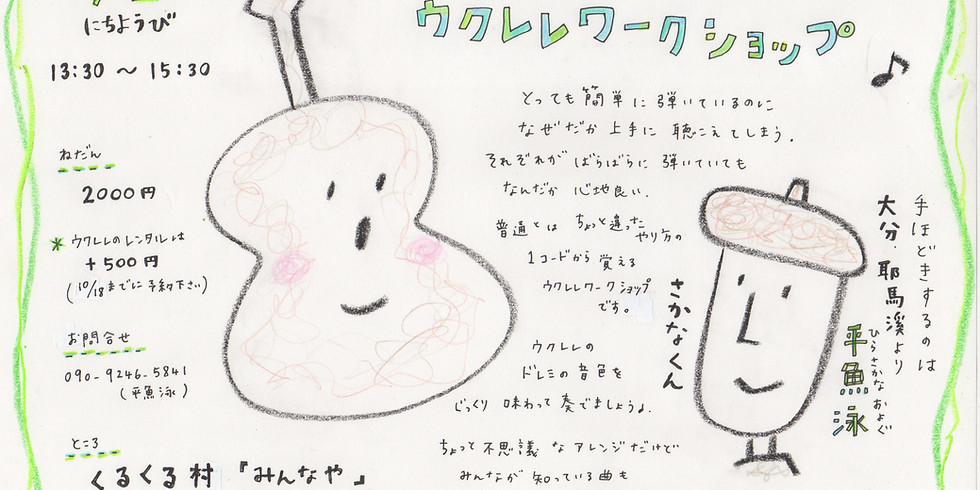 ウクレレワークショップ
にちようび
13:30 〜 15:30
ねだん
2000円
* ウクレレのレンタルは
+500円
(10/18までに予約下さい)
お問合せ
090-9246-5841
(平魚泳)
ところ
くるくる村 『みんなや』
とっても簡単に弾いているのに
なぜだか上手に聴こえてしまう.
それぞれがばらばらに弾いていても
なんだか心地良い.
普通とはちょっと違ったやり方の
1コードから覚える
ウクレレワークショップ
です。
ウクレレの
ドレミの音色を
じっくり味わって奏でましょうよ.
ちょっと不思議なアレンジだけど
みんなが知っている曲も
手ほどきするのは
大分・耶馬溪より
平魚泳
ひらさかな およぐ
さかなくん